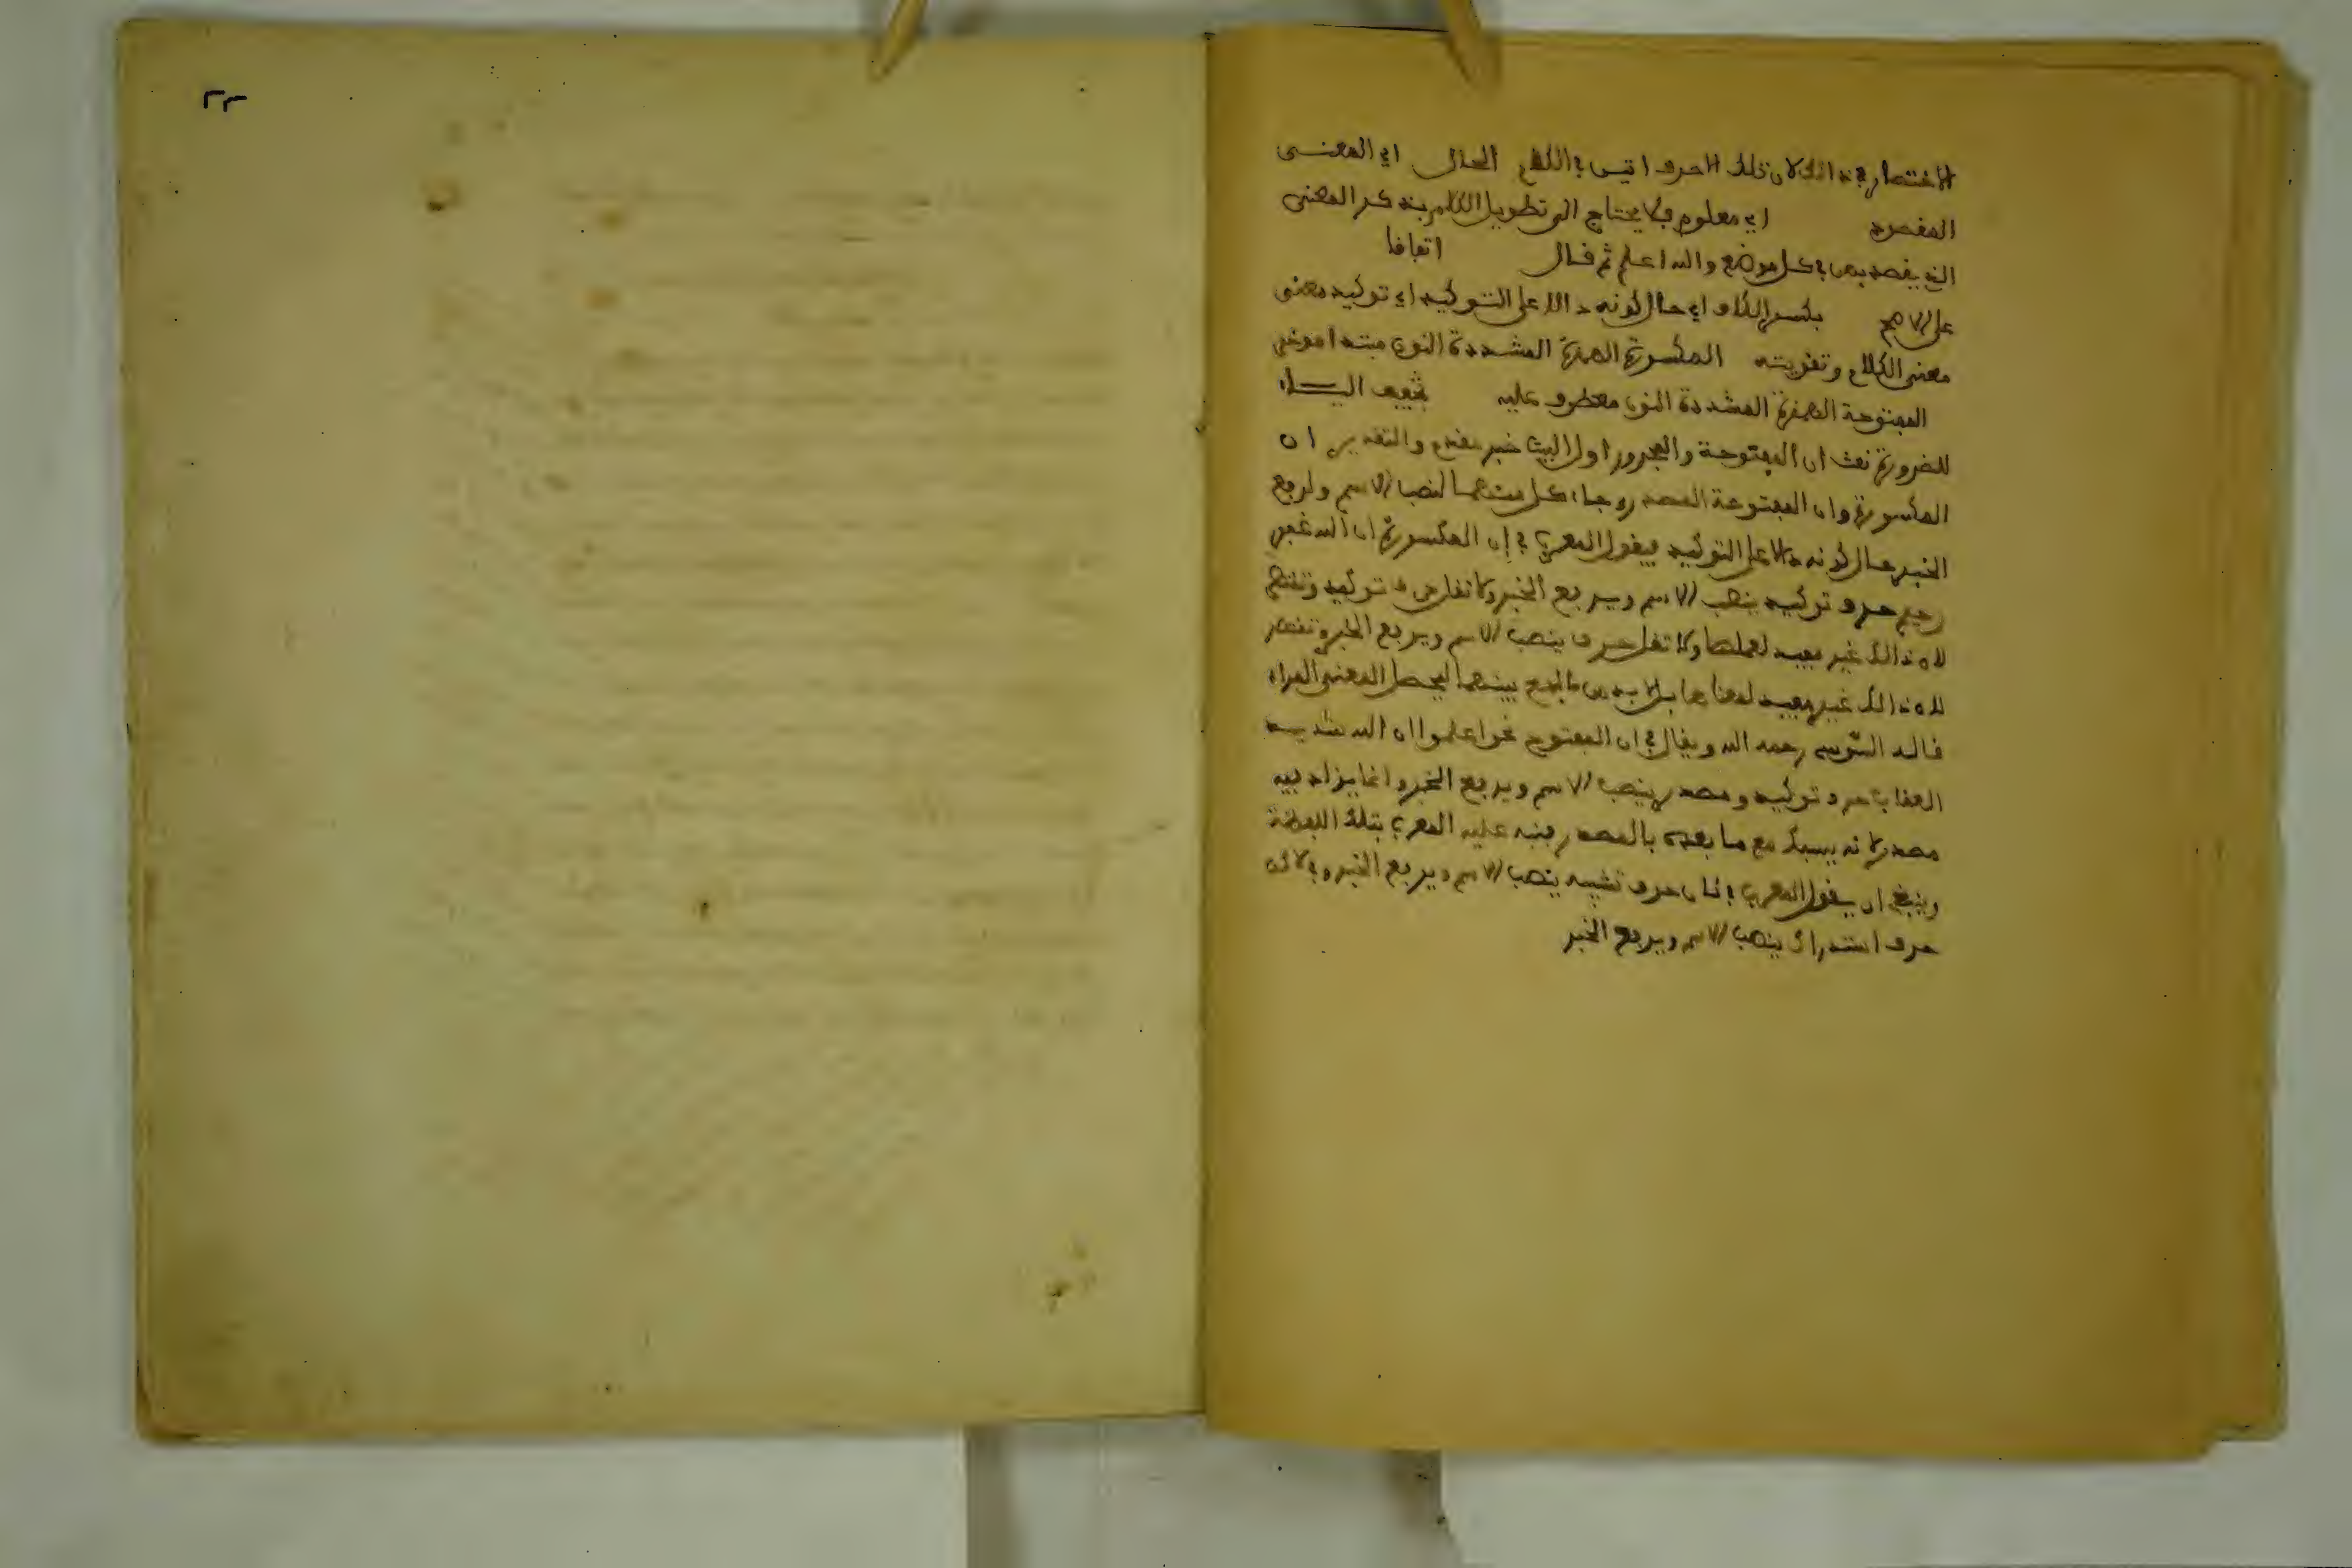 الاختصار في ذالك لان تلك الاحرف اتيس في الكلام الحال اي المعنى
المقصود اي معلوم فلا يحتاج الى تطويل الكلام بذكر المعنى
الذي يقصد بهن في كل موضع والله اعلم ثم قال اتفاقا
على الاصح بكسر الكاف اي حال كونه دالا على التوكيد اي توكيد معنى
معنى الكلام وتقويته المكسورة الهمزة المشددة النون مبتدا موخر
المفتوحة الهمزة المشددة النون معطوف عليه بتخفيف اليـاء
للضرورة نعت ان المفتوحة والمجرور اول البيت خبر مقدم والتقدير ان
المكسورة وان المفتوحة المصدر وجاء كل منهما لنصب الاسم ولرفع
الخبر حال كونه دالا على التوكيد فيقول المعرب في إن المكسورة ان الله غفور
رحيم حرف توكيد ينصب الاسم ويرفع الخبر ولا تقل حرف توكيد وتقتصر
لان ذالك غير مفيد لعملها ولا تقل حرف ينصب الاسم ويرفع الخبر وتقتصر
لان ذالك غير مفيد لمعناها بل لا بد من الجمع بينهما ليحصل المعنى المراد
قاله السوسي رحمه الله ويقال في ان المفتوح نحو اعلموا ان الله شديد
العقاب حرف توكيد ومصدر ينصب الاسم ويرفع الخبر وانما يزاد فيه
مصدر لانه يسبك مع ما بعده بالمصدر فنبه عليه المعرب بتلك اللفظة
وينبغي ان يقول المعرب في كان حرف تشبيه ينصب الاسم ويرفع الخبر وفي لاكن
حرف استدراك ينصب الاسم ويرفع الخبر
٢٣